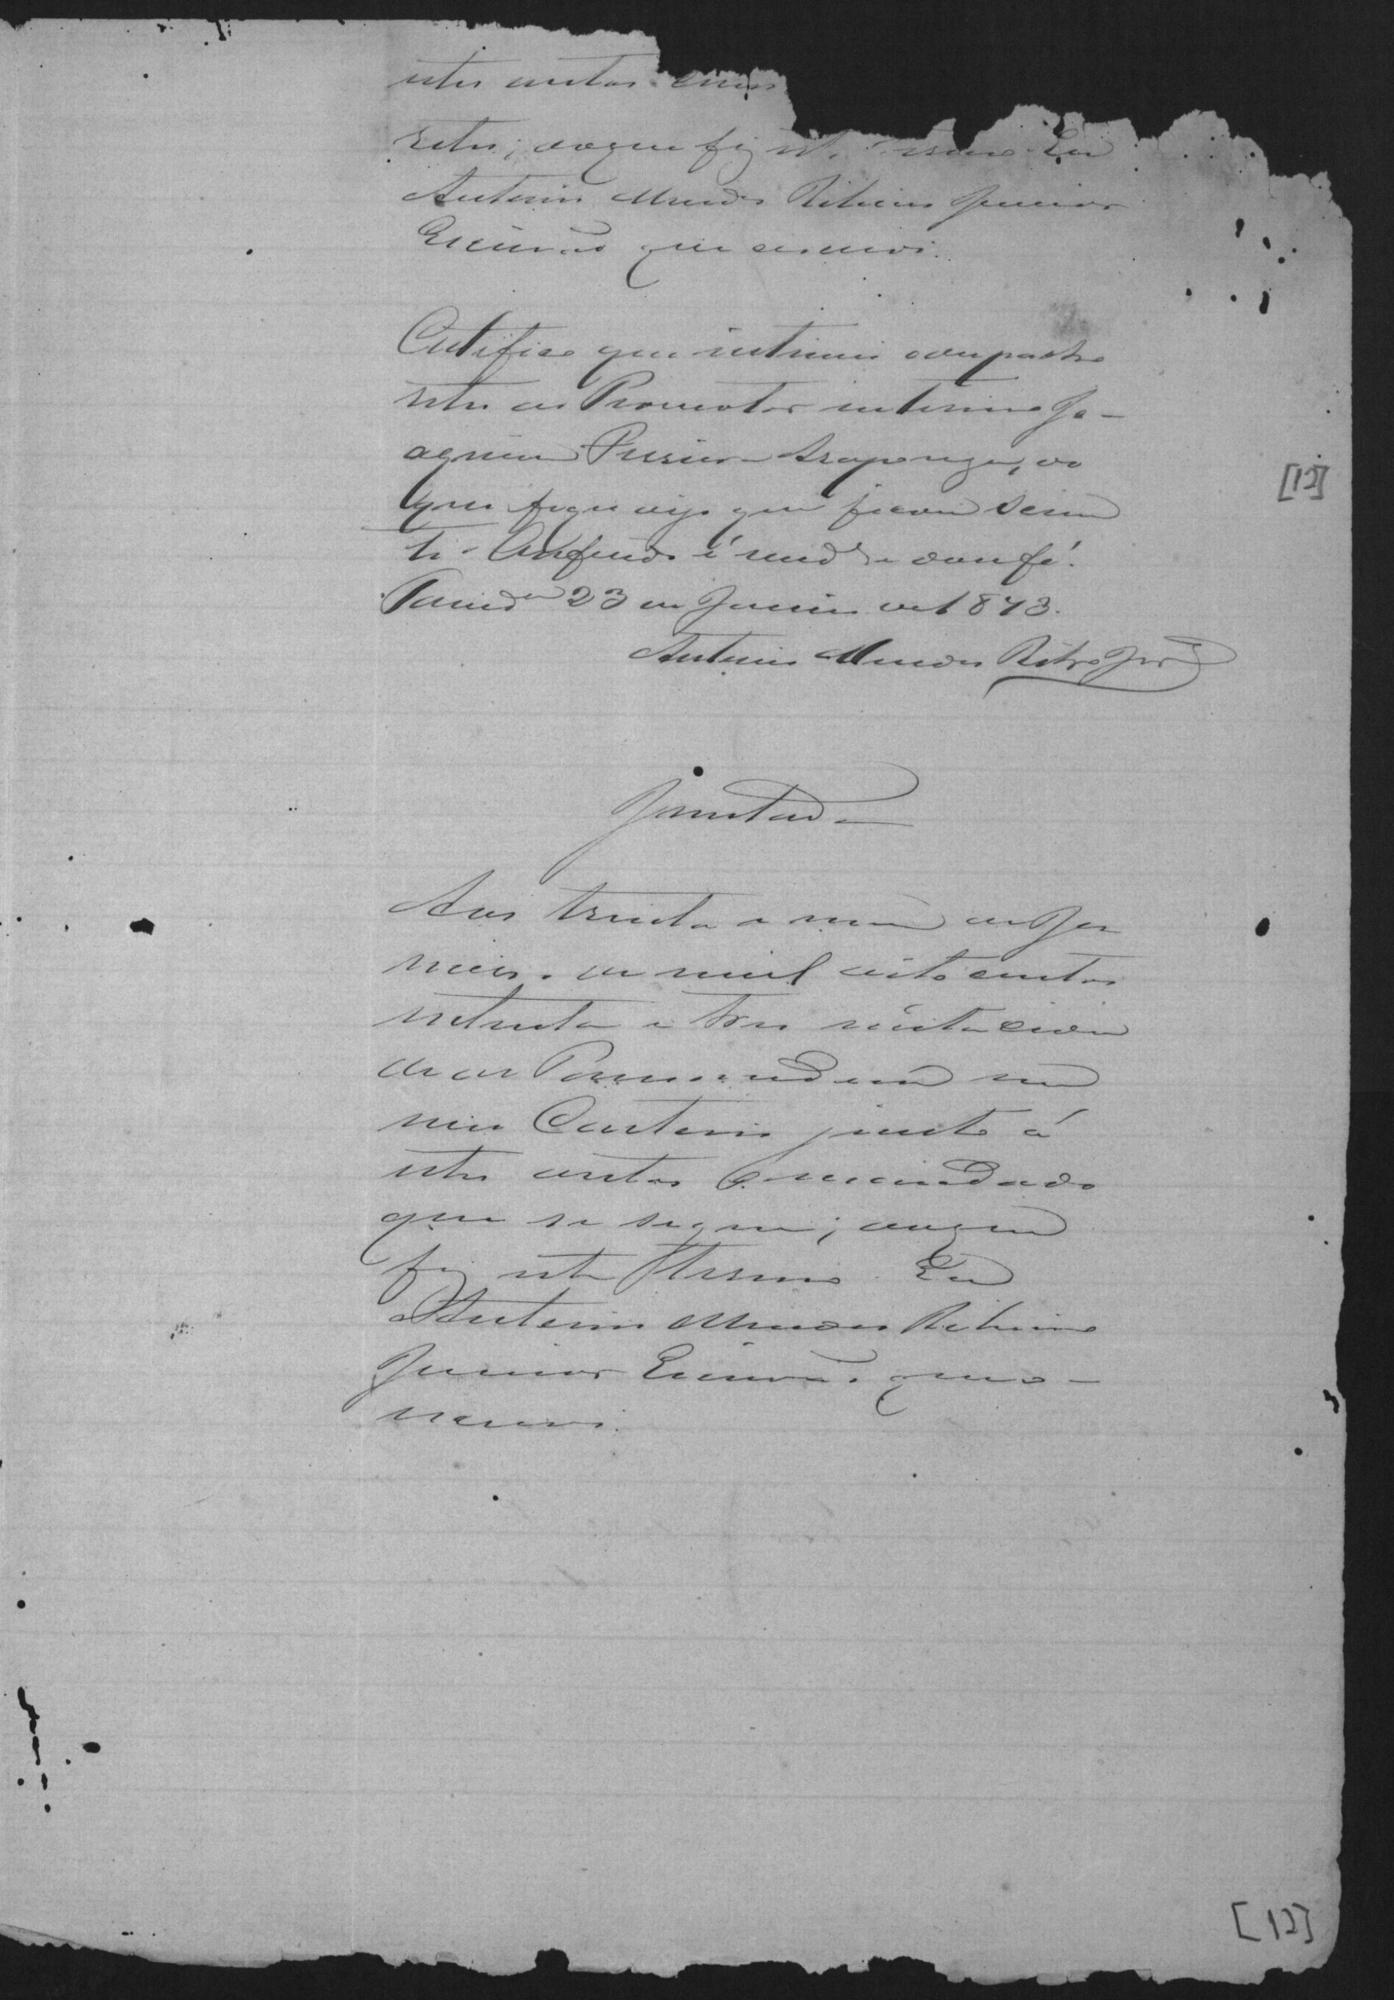 estes autos com
retro; do que fiz este termo. Eu
Antonio Mendes Ribeiro Junior
Escrivão que escrevi.
Certifico que intimei o despacho
retro ao Promotor interino Jo-
aquim Pereira Araponga, do
que fiquei que ficou scien
te. O referido é verd.e e dou fé.
23 de Janeiro de 1873.
Antonio Mendes Ribro Jor
Juntada
Aos trinta e um de Ja
neiro de mil oito centos
setenta e tres nesta cidade
de em
meu Cartorio junto á
estes autos o mandado
que se segue; do que
fiz este termo. Eu
Antonio Mendes Ribeiro
Junior Escrivão que o
escrevi.
[12]
[12]